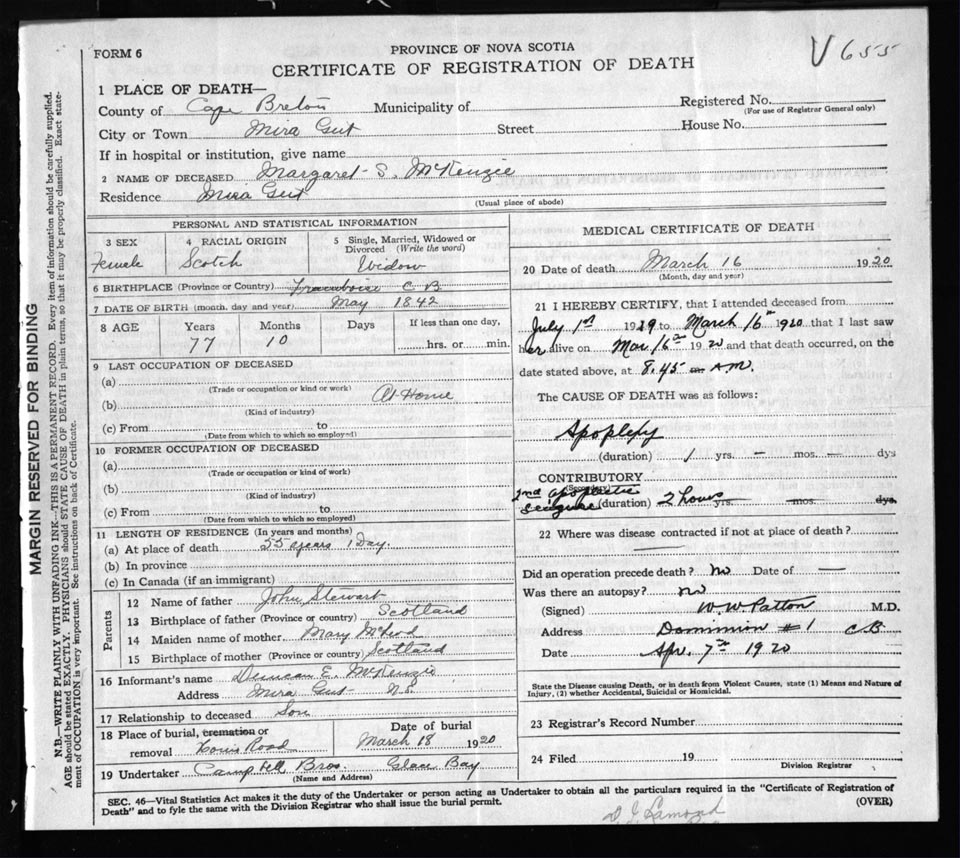 FORM 6
PROVINCE OF NOVA SCOTIA
V 655
CERTIFICATE OF REGISTRATION OF DEATH
1 PLACE OF DEATH—
County of Cape Breton Municipality of Registered No.
(For use of Registrar General only)
City or Town Mira Gut Street House No.
If in hospital or institution, give name
2 NAME OF DECEASED Margaret S. McKenzie
Residence Mira Gut
(Usual place of abode)
PERSONAL AND STATISTICAL INFORMATION
3 SEX
Female
4 RACIAL ORIGIN
Scotch
5 Single, Married, Widowed or Divorced (Write the word)
Widow
6 BIRTHPLACE (Province or Country) Framboise C B
7 DATE OF BIRTH (month, day and year) May 1842
8 AGE Years Months Days If less than one day,
77 10 hrs. or min.
9 LAST OCCUPATION OF DECEASED
(a)
(Trade or occupation or kind of work)
(b) At Home
(Kind of industry)
(c) From to
(Date from which to which so employed)
10 FORMER OCCUPATION OF DECEASED
(a)
(Trade or occupation or kind of work)
(b)
(Kind of industry)
(c) From to
(Date from which to which so employed)
11 LENGTH OF RESIDENCE (In years and months)
(a) At place of death 55 years 1 Day
(b) In province
(c) In Canada (if an immigrant)
Parents
12 Name of father John Stewart
13 Birthplace of father (Province or country) Scotland
14 Maiden name of mother Mary McLeod
15 Birthplace of mother (Province or country) Scotland
16 Informant's name Duncan E. McKenzie
Address Mira Gut N.S.
17 Relationship to deceased Son
18 Place of burial, cremation or removal Date of burial
Louis Road March 18 1920
19 Undertaker Campbell Bros. Glace Bay
(Name and Address)
MEDICAL CERTIFICATE OF DEATH
20 Date of death March 16 1920
(Month, day and year)
21 I HEREBY CERTIFY, that I attended deceased from
July 1st 1919 to March 16th 1920 that I last saw
her alive on Mar 16th 1920 and that death occurred, on the
date stated above, at 8.45 m A.M.
The CAUSE OF DEATH was as follows:
Apoplexy
(duration) 1 yrs. — mos. — dys
CONTRIBUTORY
(Secondary)
2nd apoplectic
seizure (duration) 2 hours yrs. mos. dys.
22 Where was disease contracted if not at place of death?
Did an operation precede death? No Date of —
Was there an autopsy? no
(Signed) W. W. Patton M.D.
Address Dominion #1 C.B
Date Apr. 7th 1920
State the Disease causing Death, or in death from Violent Causes, state (1) Means and Nature of
Injury, (2) whether Accidental, Suicidal or Homicidal.
23 Registrar's Record Number
24 Filed 19
Division Registrar
SEC. 46—Vital Statistics Act makes it the duty of the Undertaker or person acting as Undertaker to obtain all the particulars required in the "Certificate of Registration of
Death" and to fyle the same with the Division Registrar who shall issue the burial permit.
(OVER)
Lamond
MARGIN RESERVED FOR BINDING
N.B.—WRITE PLAINLY WITH UNFADING INK—THIS IS A PERMANENT RECORD. Every item of information should be carefully supplied.
AGE should be stated EXACTLY. PHYSICIANS should STATE CAUSE OF DEATH in plain terms, so that it may be properly classified. Exact state-
ment of OCCUPATION is very important. See instructions on back of Certificate.